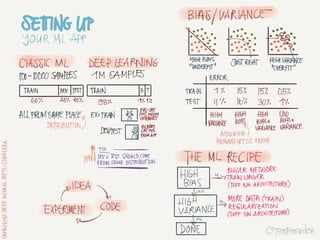 SETTING UP
YOUR ML APP
CLASSIC ML
100-10000 SAMPLES
TRAIN DEV TEST
60% 20% 20%
ALL FROM SAME PLACE
DISTRIBUTION
DEEP LEARNING
1M SAMPLES
TRAIN D T
98% 1% 1%
EX: TRAIN
DEV/TEST
TIP
DEV & TEST SHOULD COME
FROM SAME DISTRIBUTION
IDEA
CODE
EXPERIMENT
BIAS/VARIANCE
HIGH BIAS
"UNDERFIT"
JUST RIGHT
HIGH VARIANCE
"OVERFIT"
ERROR
TRAIN 1% 15% 15% 0.5%
TEST 11% 16% 30% 1%
HIGH
VARIANCE
HIGH
BIAS
HIGH
BIAS &
VARIANCE
LOW
BIAS &
VARIANCE
ASSUMING
HUMANS GET 0% ERROR
THE ML RECIPE
HIGH
BIAS
BIGGER NETWORK
TRAIN LONGER
(DIFF NN ARCHITECTURE)
HIGH
VARIANCE
MORE DATA (TRAIN)
REGULARIZATION
(DIFF NN ARCHITECTURE)
DONE
@TessFerrandez